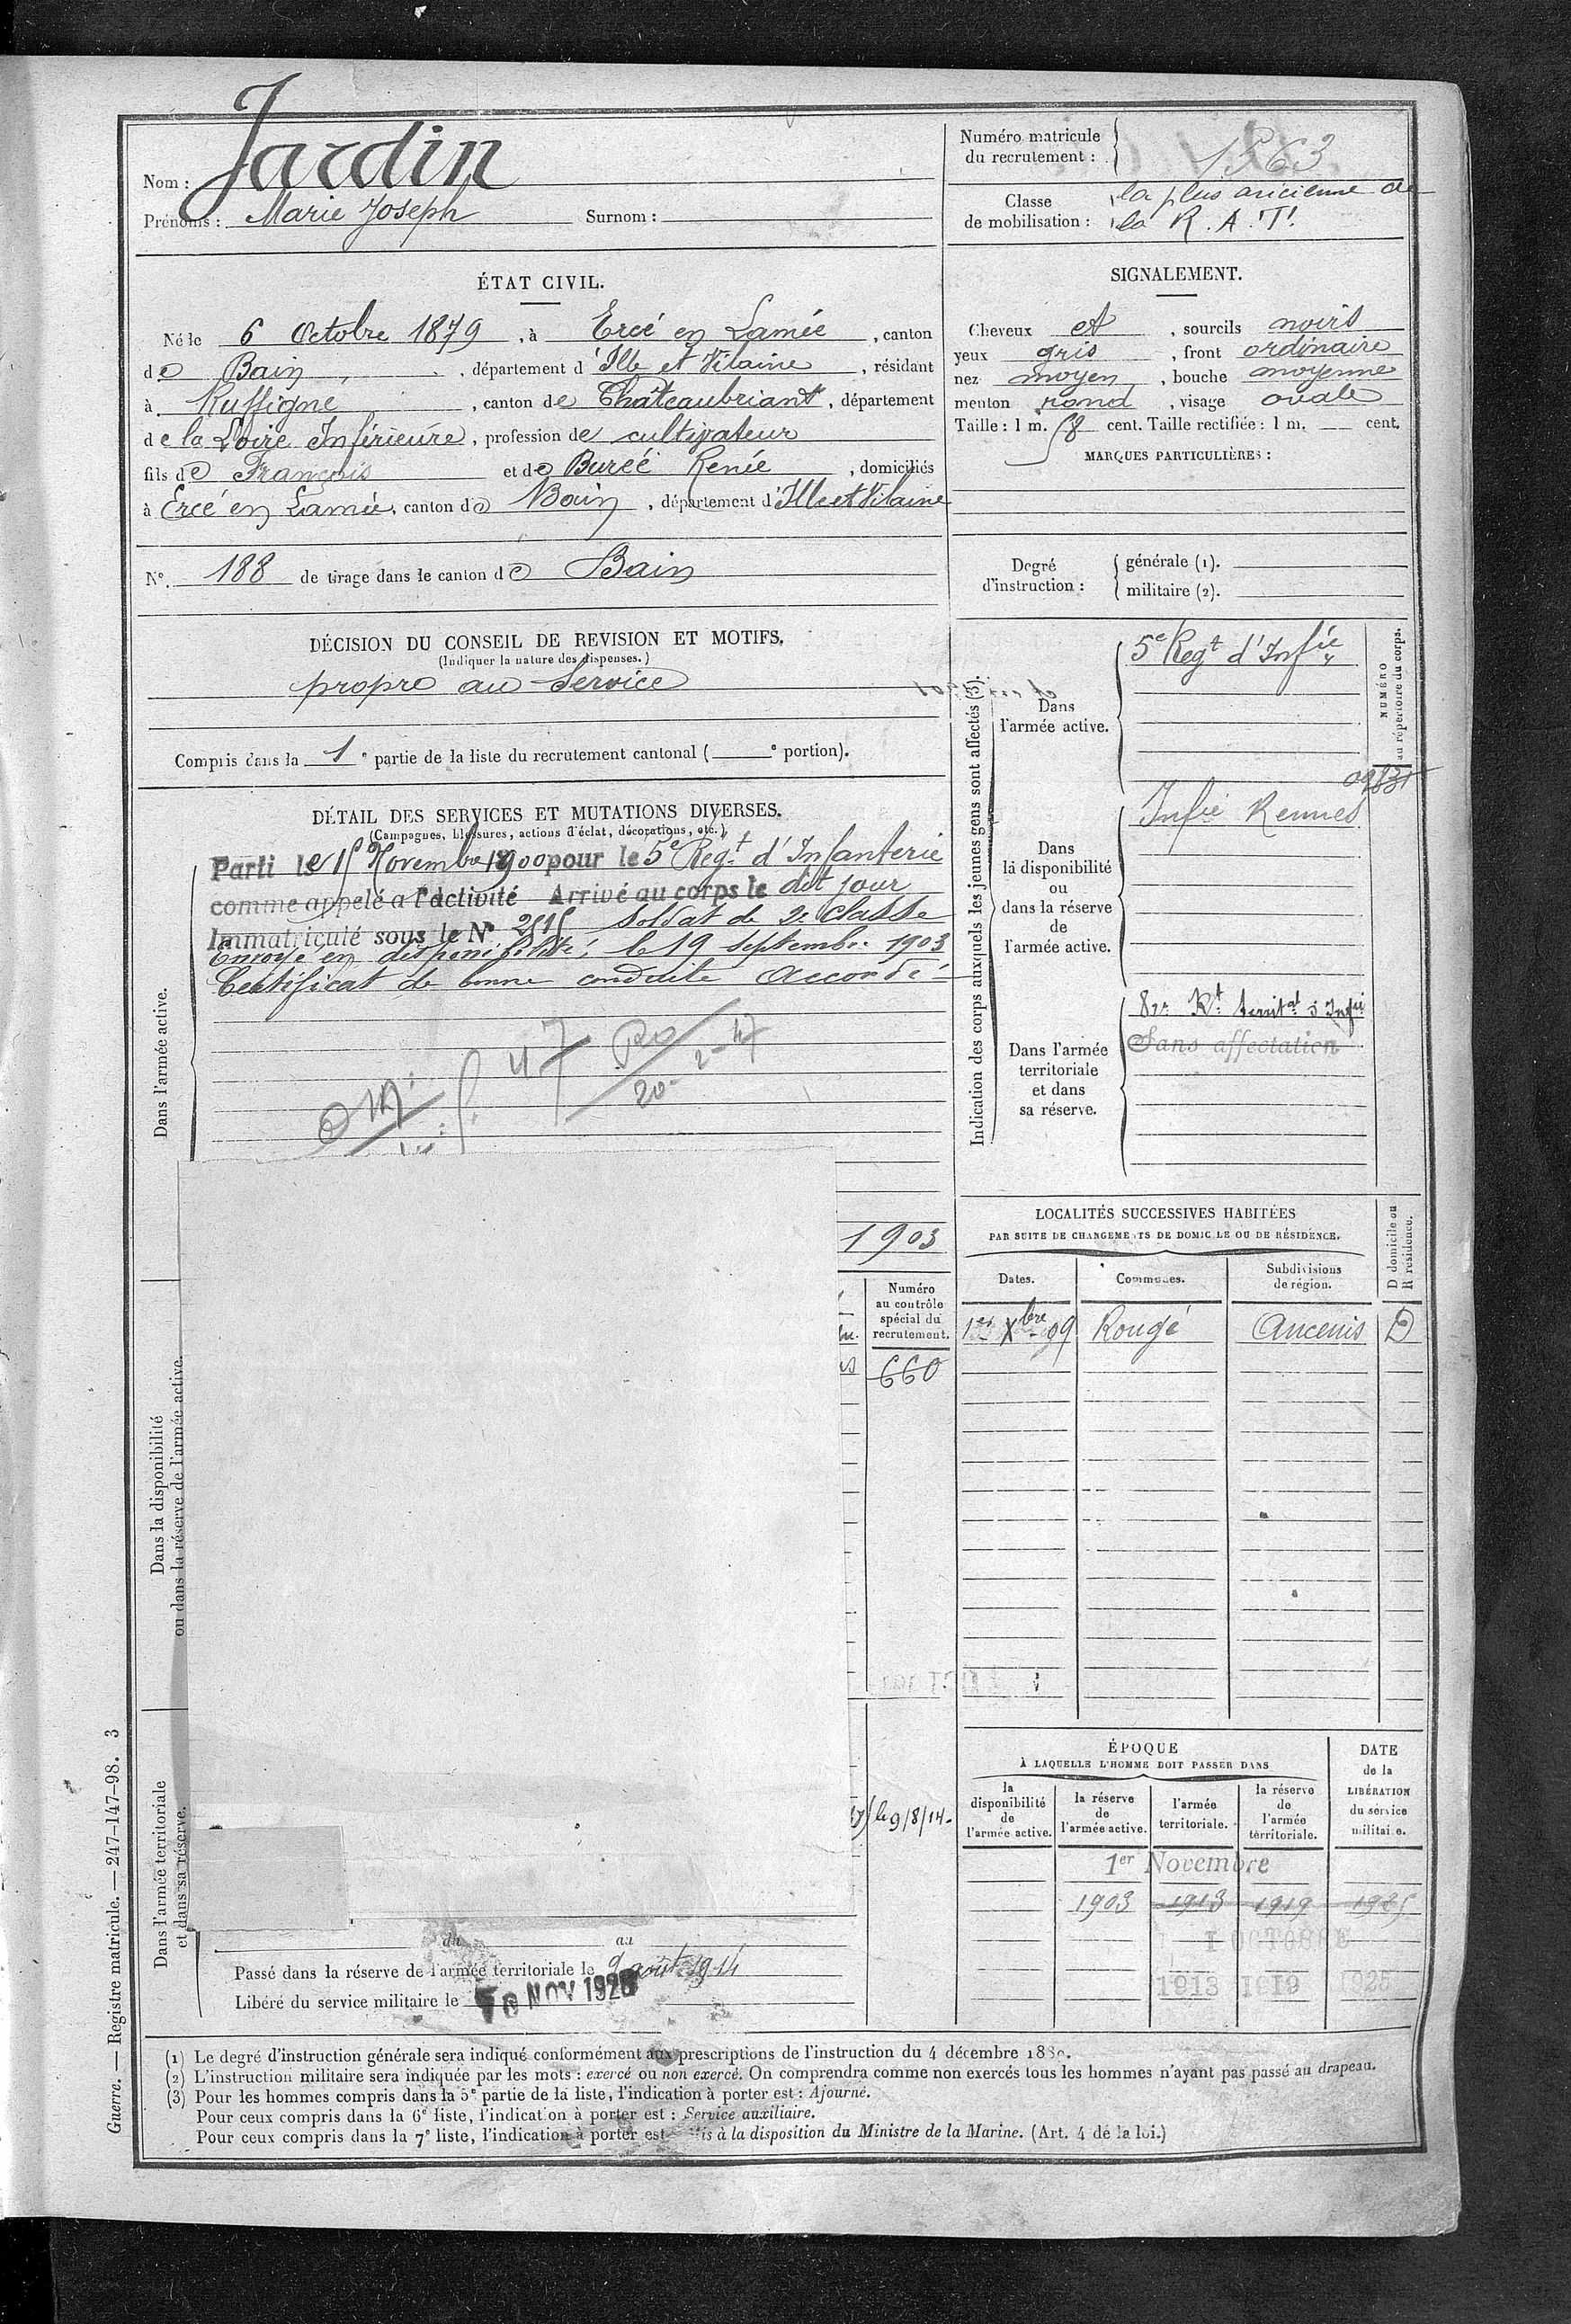 Jardin
Nom :
Prénoms : Marie Joseph Surnom :
Numéro matricule
du recrutement : 1863
Classe
de mobilisation : la plus ancienne de
la R. A. T.
ÉTAT CIVIL.
Né le 6 Octobre 1879, à Ercé en Lamée, canton
de Bain, département d'Ille et Vilaine, résidant
à Ruffigné, canton de Châteaubriant, département
de la Loire Inférieure, profession de cultivateur
fils de François et de Burée Renée, domiciliés
à Ercé en Lamée, canton de Bain, département d'Ille et Vilaine
N°. 188 de tirage dans le canton de Bain
SIGNALEMENT.
Cheveux et, sourcils noirs
yeux gris, front ordinaire
nez moyen, bouche moyenne
menton rond, visage ovale
Taille : 1 m. 58 cent. Taille rectifiée : 1 m. — cent.
MARQUES PARTICULIÈRES :
Degré
d'instruction :
générale (1).
militaire (2).
DÉCISION DU CONSEIL DE REVISION ET MOTIFS.
(Indiquer la nature des dispenses.)
propre au service
Compris dans la 1e partie de la liste du recrutement cantonal ( e portion).
DÉTAIL DES SERVICES ET MUTATIONS DIVERSES.
(Campagnes, blessures, actions d'éclat, décorations, etc.)
Dans l'armée active.
Parti le 15 Novembre 1900 pour le 5e Regt d'Infanterie
comme appelé a l'activité Arrivé au corps le dit jour
Immatriculé sous le N° 2515 Soldat de 2e classe
Envoyé en disponibilité, le 19 septembre 1903
Certificat de bonne conduite Accordé
47
20-2-47
1903
Numéro
au contrôle
spécial du
recrutement.
660
Dans la disponibilité
ou dans la réserve de l'armée active.
Dans l'armée territoriale
et dans sa réserve.
le 9/8/14-
du au
Passé dans la réserve de l'armée territoriale le 9 août 1914
Libéré du service militaire le 10 NOV 1928
Indication des corps auxquels les jeunes gens sont affectés (3).
NUMÉRO
au répertoire du corps.
Dans
l'armée active.
5e Regt d'Infie
Dans
la disponibilité
ou
dans la réserve
de
l'armée active.
Infie Rennes
Dans l'armée
territoriale
et dans
sa réserve.
Rt territal d'Infie
Sans affectation
LOCALITÉS SUCCESSIVES HABITÉES
PAR SUITE DE CHANGEMENTS DE DOMICILE OU DE RÉSIDENCE.
D domicile ou
R résidence.
Dates. Communes. Subdivisions
de région.
1er Xbre 09 Rougé Ancenis D
ÉPOQUE
À LAQUELLE L'HOMME DOIT PASSER DANS
la
disponibilité
de
l'armée active.
la réserve
de
l'armée active.
l'armée
territoriale.
la réserve
de
l'armée
territoriale.
DATE
de la
LIBÉRATION
du service
militaire.
1er Novembre
1903 1913 1919 1925
1 OCTOBRE
1913 1919 1925
(1) Le degré d'instruction générale sera indiqué conformément aux prescriptions de l'instruction du 4 décembre 1889.
(2) L'instruction militaire sera indiquée par les mots : exercé ou non exercé. On comprendra comme non exercés tous les hommes n'ayant pas passé au drapeau.
(3) Pour les hommes compris dans la 5e partie de la liste, l'indication à porter est : Ajourné.
Pour ceux compris dans la 6e liste, l'indication à porter est : Service auxiliaire.
Pour ceux compris dans la 7e liste, l'indication à porter est is à la disposition du Ministre de la Marine. (Art. 4 de la loi.)
Guerre. — Registre matricule. — 247-147-98. 3